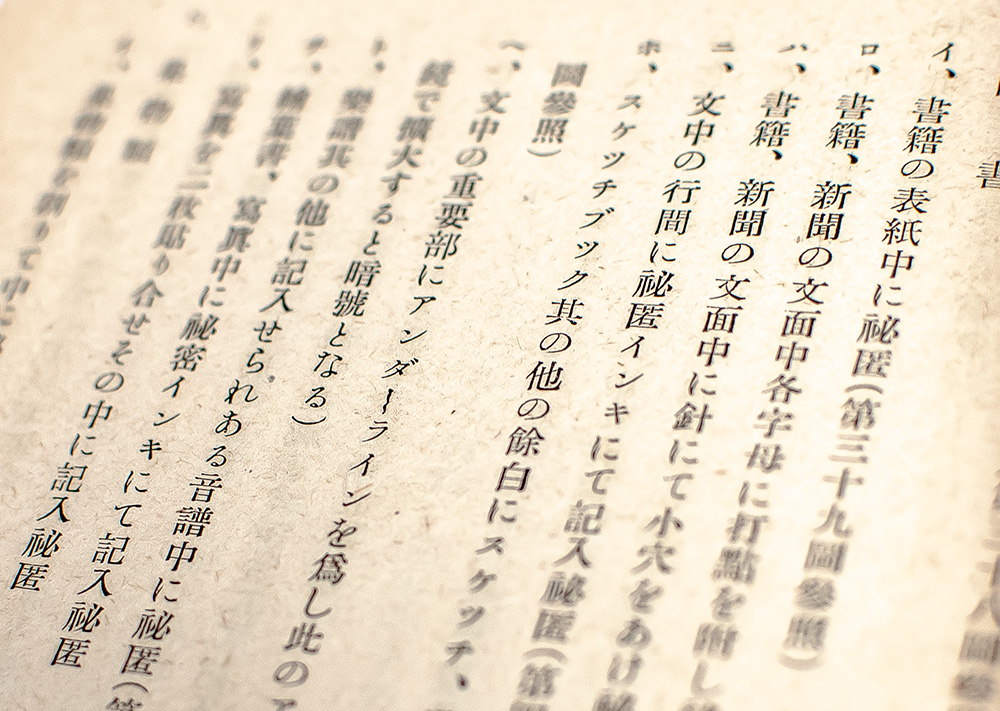 書
イ、書籍の表紙中に祕匿(第三十九圖參照)
ロ、書籍、新聞の文面中各字母に打點を附し
ハ、書籍、新聞の文面中に針にて小穴をあけ祕
ニ、文中の行間に祕匿インキにて記入祕匿(第
ホ、スケツチブツク其の他の餘白にスケツチ、
圖參照)
ヘ、文中の重要部にアンダーラインを爲し此の
鏡で擴大すると暗號となる)
ト、樂譜其の他に記入せられある音譜中に祕匿(第
チ、繪葉書、寫眞中に祕密インキにて記入祕匿
リ、寫眞を二枚貼り合せその中に記入祕匿
果物類
果物類を割りて中に